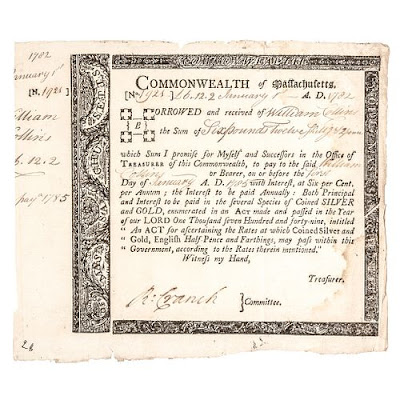 1782
January 1st
[N. 1921
William
Collins
6.12.2
pay 1785
28
COMMONWEALTH of Massachusetts.
[No. 1921] £6.12.2 January 1st A. D. 1782
BORROWED and received of William Collins
B
the Sum of Six pounds Twelve Shillgs & 2 penc
which Sum I promise for Myself and Successors in the Office of
TREASURER of this Commonwealth, to pay to the said William
Collins or Bearer, on or before the first
Day of January A. D. 1785 with Interest, at Six per Cent.
per Annum; the Interest to be paid Annually: Both Principal
and Interest to be paid in the several Species of Coined SILVER
and GOLD, enumerated in an ACT made and passed in the Year
of our LORD One Thousand Seven Hundred and forty-nine, intitled
" An ACT for ascertaining the Rates at which Coined Silver and
" Gold, English Half Pence and Farthings, may pass within this
" Government, according to the Rates therein mentioned."
Witness my Hand,
Treasurer.
R. Cranch } Committee.